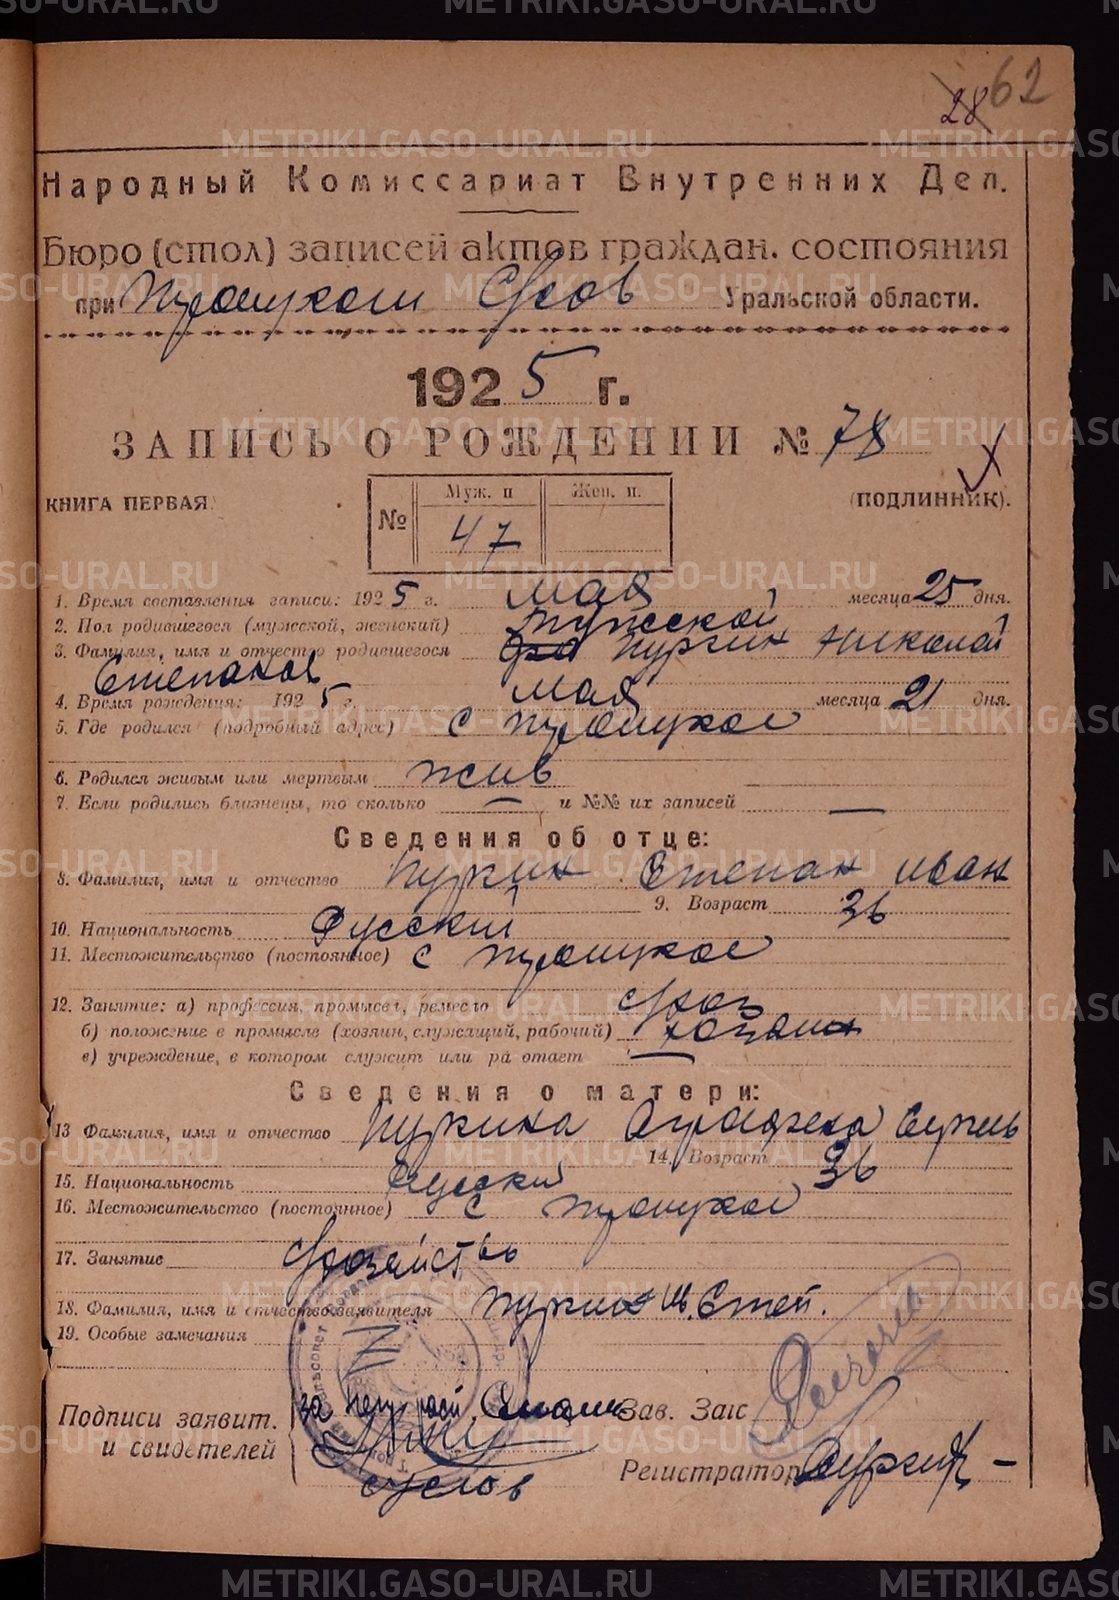 28 62
Народный Комиссариат Внутренних Дел.
Бюро (стол) записей актов граждан. состояния
при Троицком С/Сов Уральской области.
1925 г.
ЗАПИСЬ О РОЖДЕНИИ № 78
КНИГА ПЕРВАЯ. (ПОДЛИННИК).
№ Муж. п Жен. п.
47
1. Время составления записи: 1925 г. мая месяца 25 дня.
2. Пол родившегося (мужской, женский) Мужской
3. Фамилия, имя и отчество родившегося Пургин Николай
Степанов
4. Время рождения: 1925 г. мая месяца 21 дня.
5. Где родился (подробный адрес) с Троицкое
6. Родился живым или мертвым жив
7. Если родились близнецы, то сколько — и №№ их записей —
Сведения об отце:
8. Фамилия, имя и отчество Пургин Степан Иван
9. Возраст 36
10. Национальность Русский
11. Местожительство (постоянное) с Троицкое
12. Занятие: а) профессия, промысел, ремесло
б) положение в промысле (хозяин, служащий, рабочий) хозяин
в) учреждение, в котором служит или ра отает —
Сведения о матери:
13 Фамилия, имя и отчество Пургина Аграфена Сергеев
14. Возраст 36
15. Национальность Русский
16. Местожительство (постоянное) с Троицкое
17. Занятие
18. Фамилия, имя и отчество заявителя Пургин Степ.
19. Особые замечания
Подписи заявит. за негр расп. Зав. Загс
и свидетелей Регистратор
Суслов
METRIKI.GASO-URAL.RU